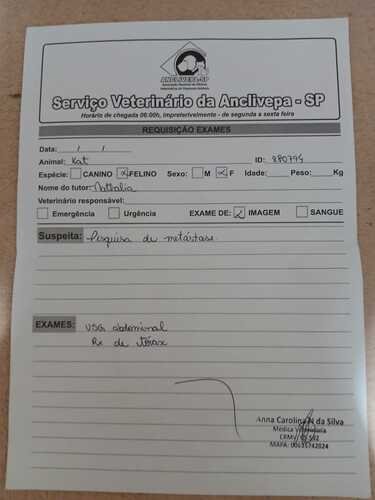 ANCLIVEPA-SP
Serviço Veterinário da Anclivepa - SP
Horário de chegada 06:00h, impreterivelmente - de segunda a sexta feira
REQUISIÇÃO EXAMES
Data: / /
Animal: Kat ID: 280794
Espécie: CANINO FELINO Sexo: M F Idade: Peso: Kg
Nome do tutor: Nathalia
Veterinário responsável:
Emergência Urgência EXAME DE: IMAGEM SANGUE
Suspeita: Pesquisa de metástase.
EXAMES: USG abdominal
Rx de tórax
Anna Carolina N da Silva
Médica Veterinária
CRMV
MAPA: